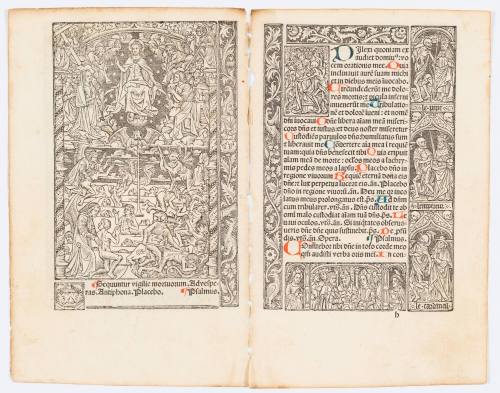 Sequuntur vigilie mortuorum. Ad vespe-
ras. Antiphona. Placebo. Psalmus.
Dilexi quoniam ex
audiet dominus: vo
cem orationis mee. Quia
inclinavit aurē suam michi
et in diebus meis īuocabo.
Circūdederūt me dolo
res mortis: et pericula inferni
invenerūt me. Tribulatio
nē et dolorē īueni: et nomē
dñi īuocavi. O dñe libera aīam meā miseri
cors dñs et iustus et deus noster miseretur
Custodiēs parvulos dñs: humiliatus sum
et liberauit me. Cōvertere aīa mea ī requiē
tuam: quia dñs benefecit tibi. Quia eripuit
aīam meā de morte: oc̄los meos a lachry
mis pedes meos a lapsu. Placebo dño in
regione vivorum. Requiē eternā dona eis
dñe: et lux perpetua luceat eis. añ. Placebo
dño in regione vivorum. añ. Heu me: quia īco
latus meus prolongatus est. ps. Ad dñm
cum tribularer. vs. añ. Dñs custodit te ab
omni malo custodiat aīam tuā dñs. ps. Le
vavi oculos. vs. añ. Si iniquitates observa
ueris dñe: dñe quis sustinebit. ps. De pfū
dis. vs. añ. Opera. Psalmus.
Confitebor tibi dñe in toto corde meo
qm̄ audisti verba oris mei. In con
le pape
lempereur
le cardinal
h